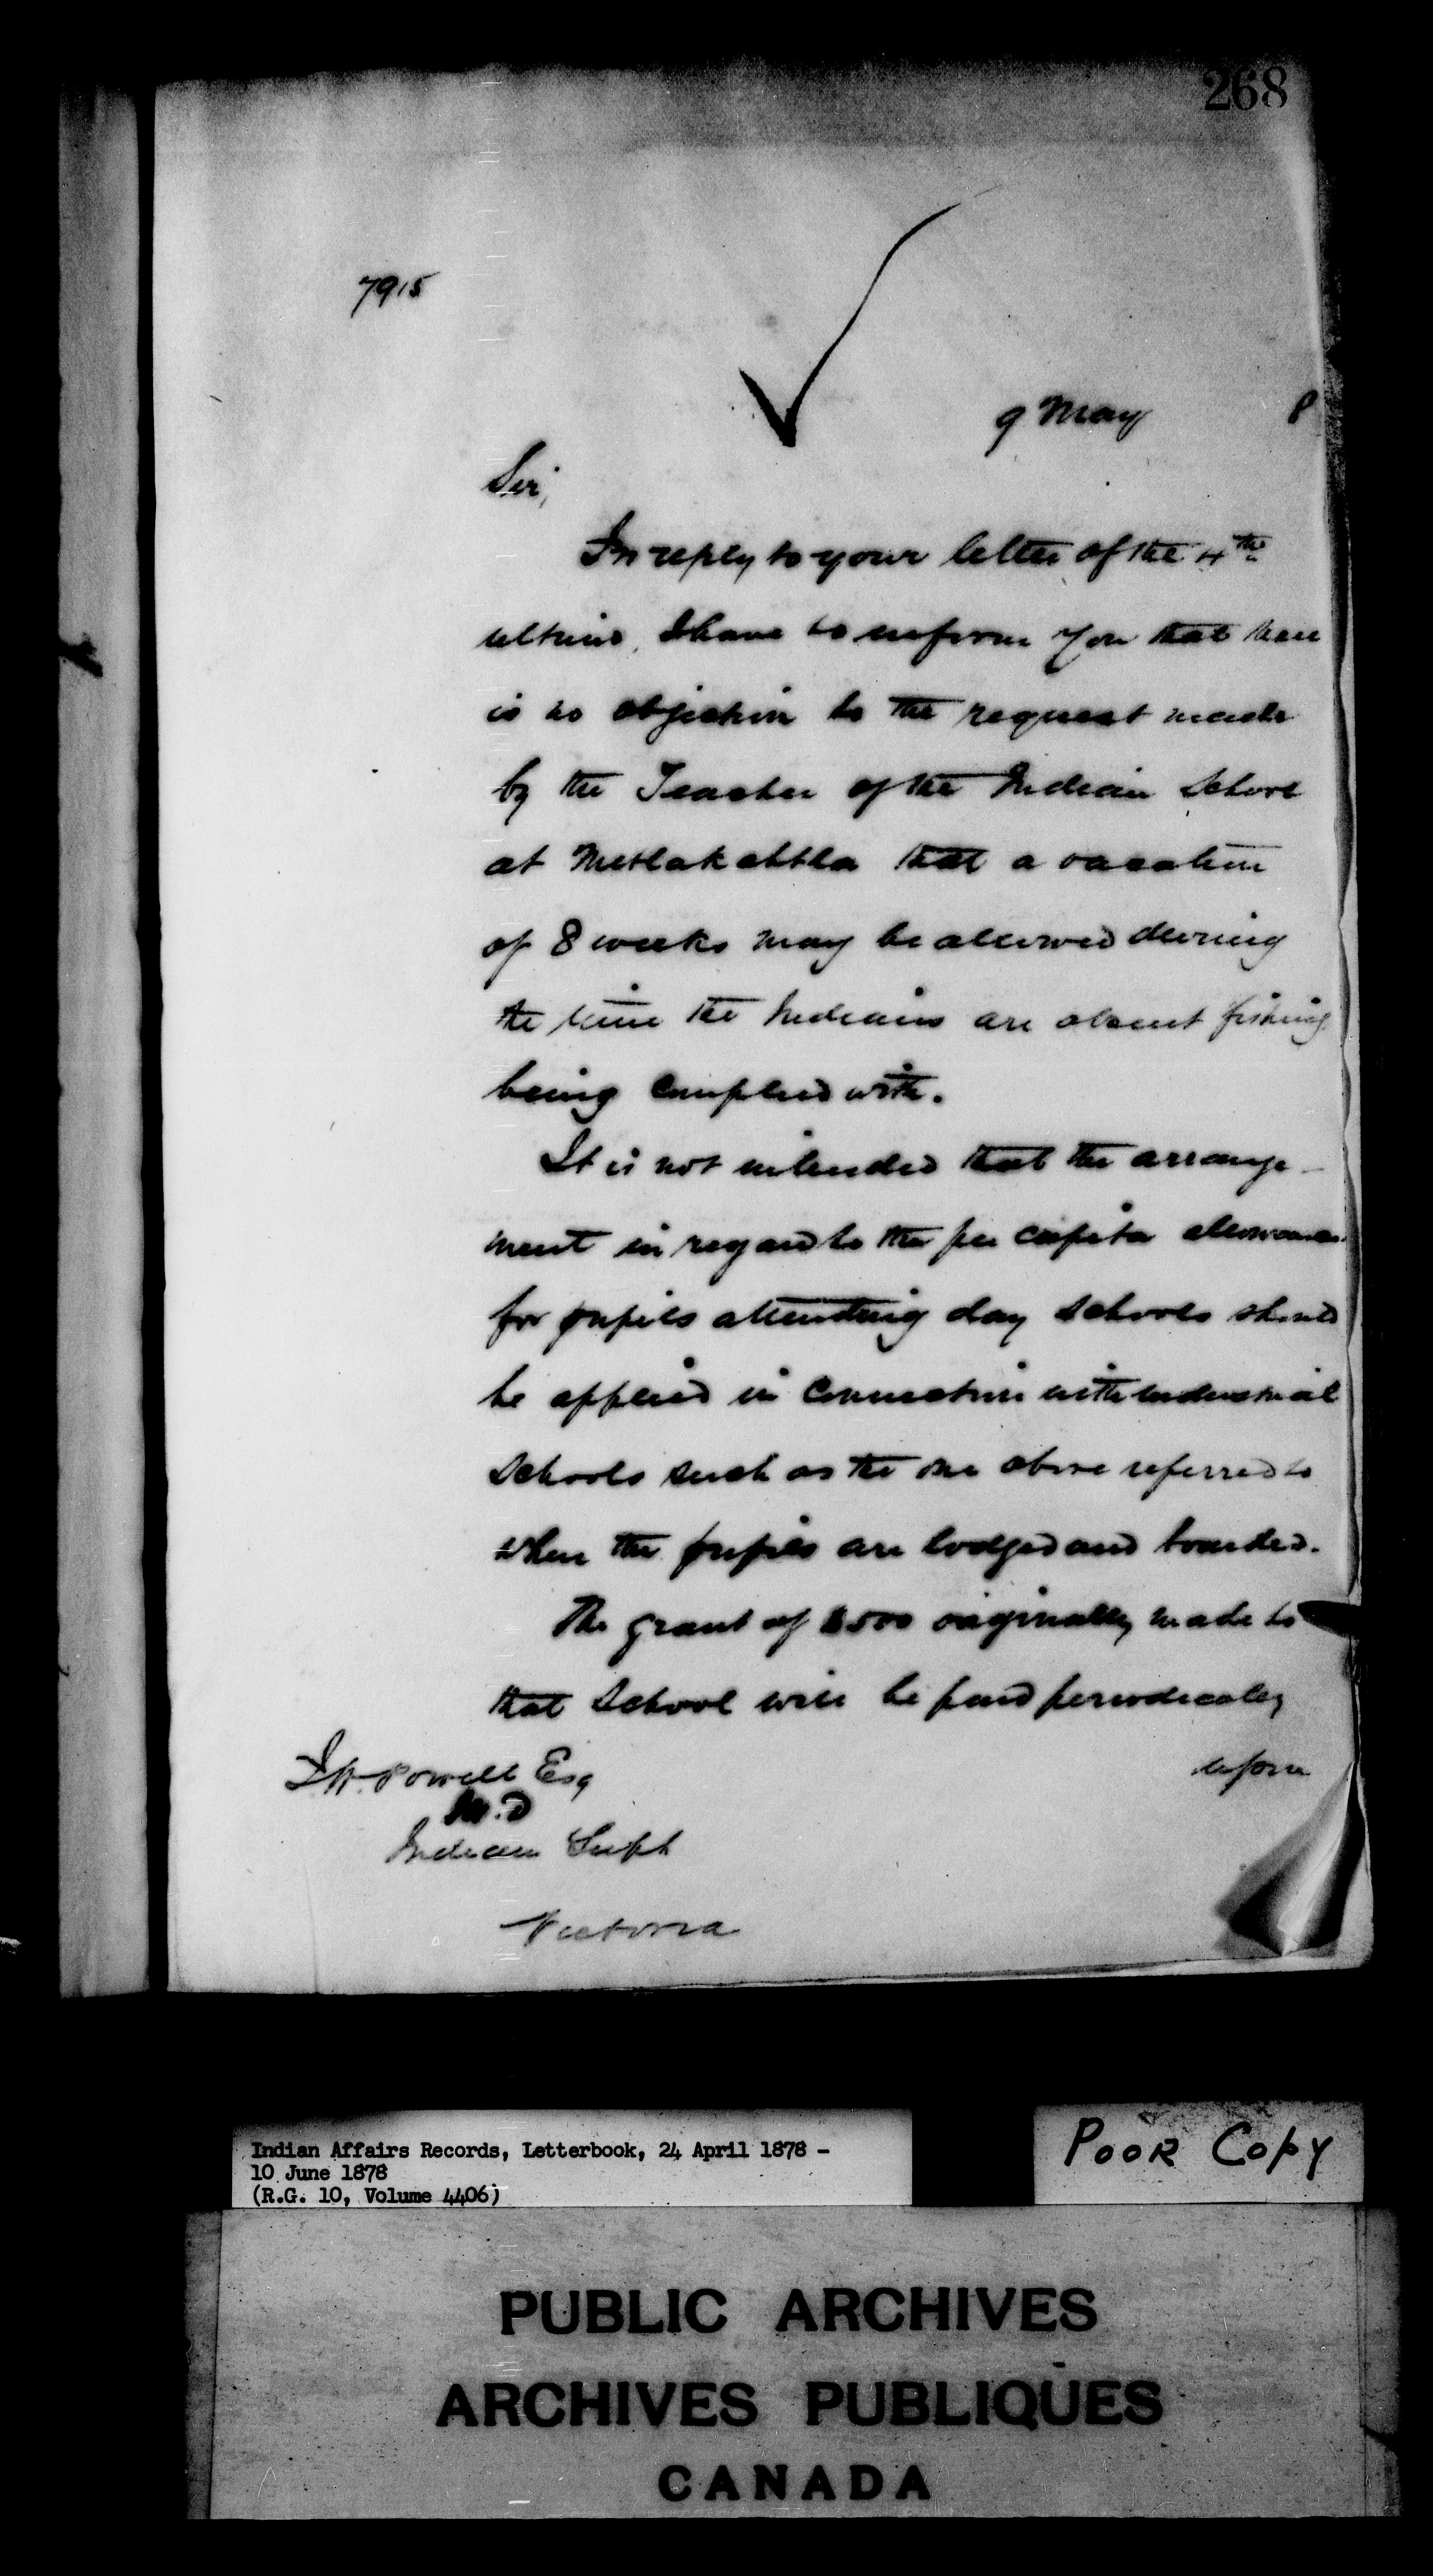 268
7915
9 May 8
Sir,
In reply to your letter of the 4th
ultimo, I have to inform you that there
is no objection to the request made
by the Teacher of the Indian School
at Metlakahtla that a vacation
of 8 weeks may be allowed during
the time the Indians are absent fishing
being complied with.
It is not intended that the arrange-
ment in regard to the per capita allowance
for pupils attending day schools should
be applied in connection with industrial
schools such as the one above referred to
when the pupils are lodged and boarded.
The grant of $500 originally made to
that School will be paid periodically
J.W. Powell Esq
M.D
Indian Supt
Victoria
Indian Affairs Records, Letterbook, 24 April 1878 -
10 June 1878
(R.G. 10, Volume 4406)
POOR COPY
PUBLIC ARCHIVES
ARCHIVES PUBLIQUES
CANADA